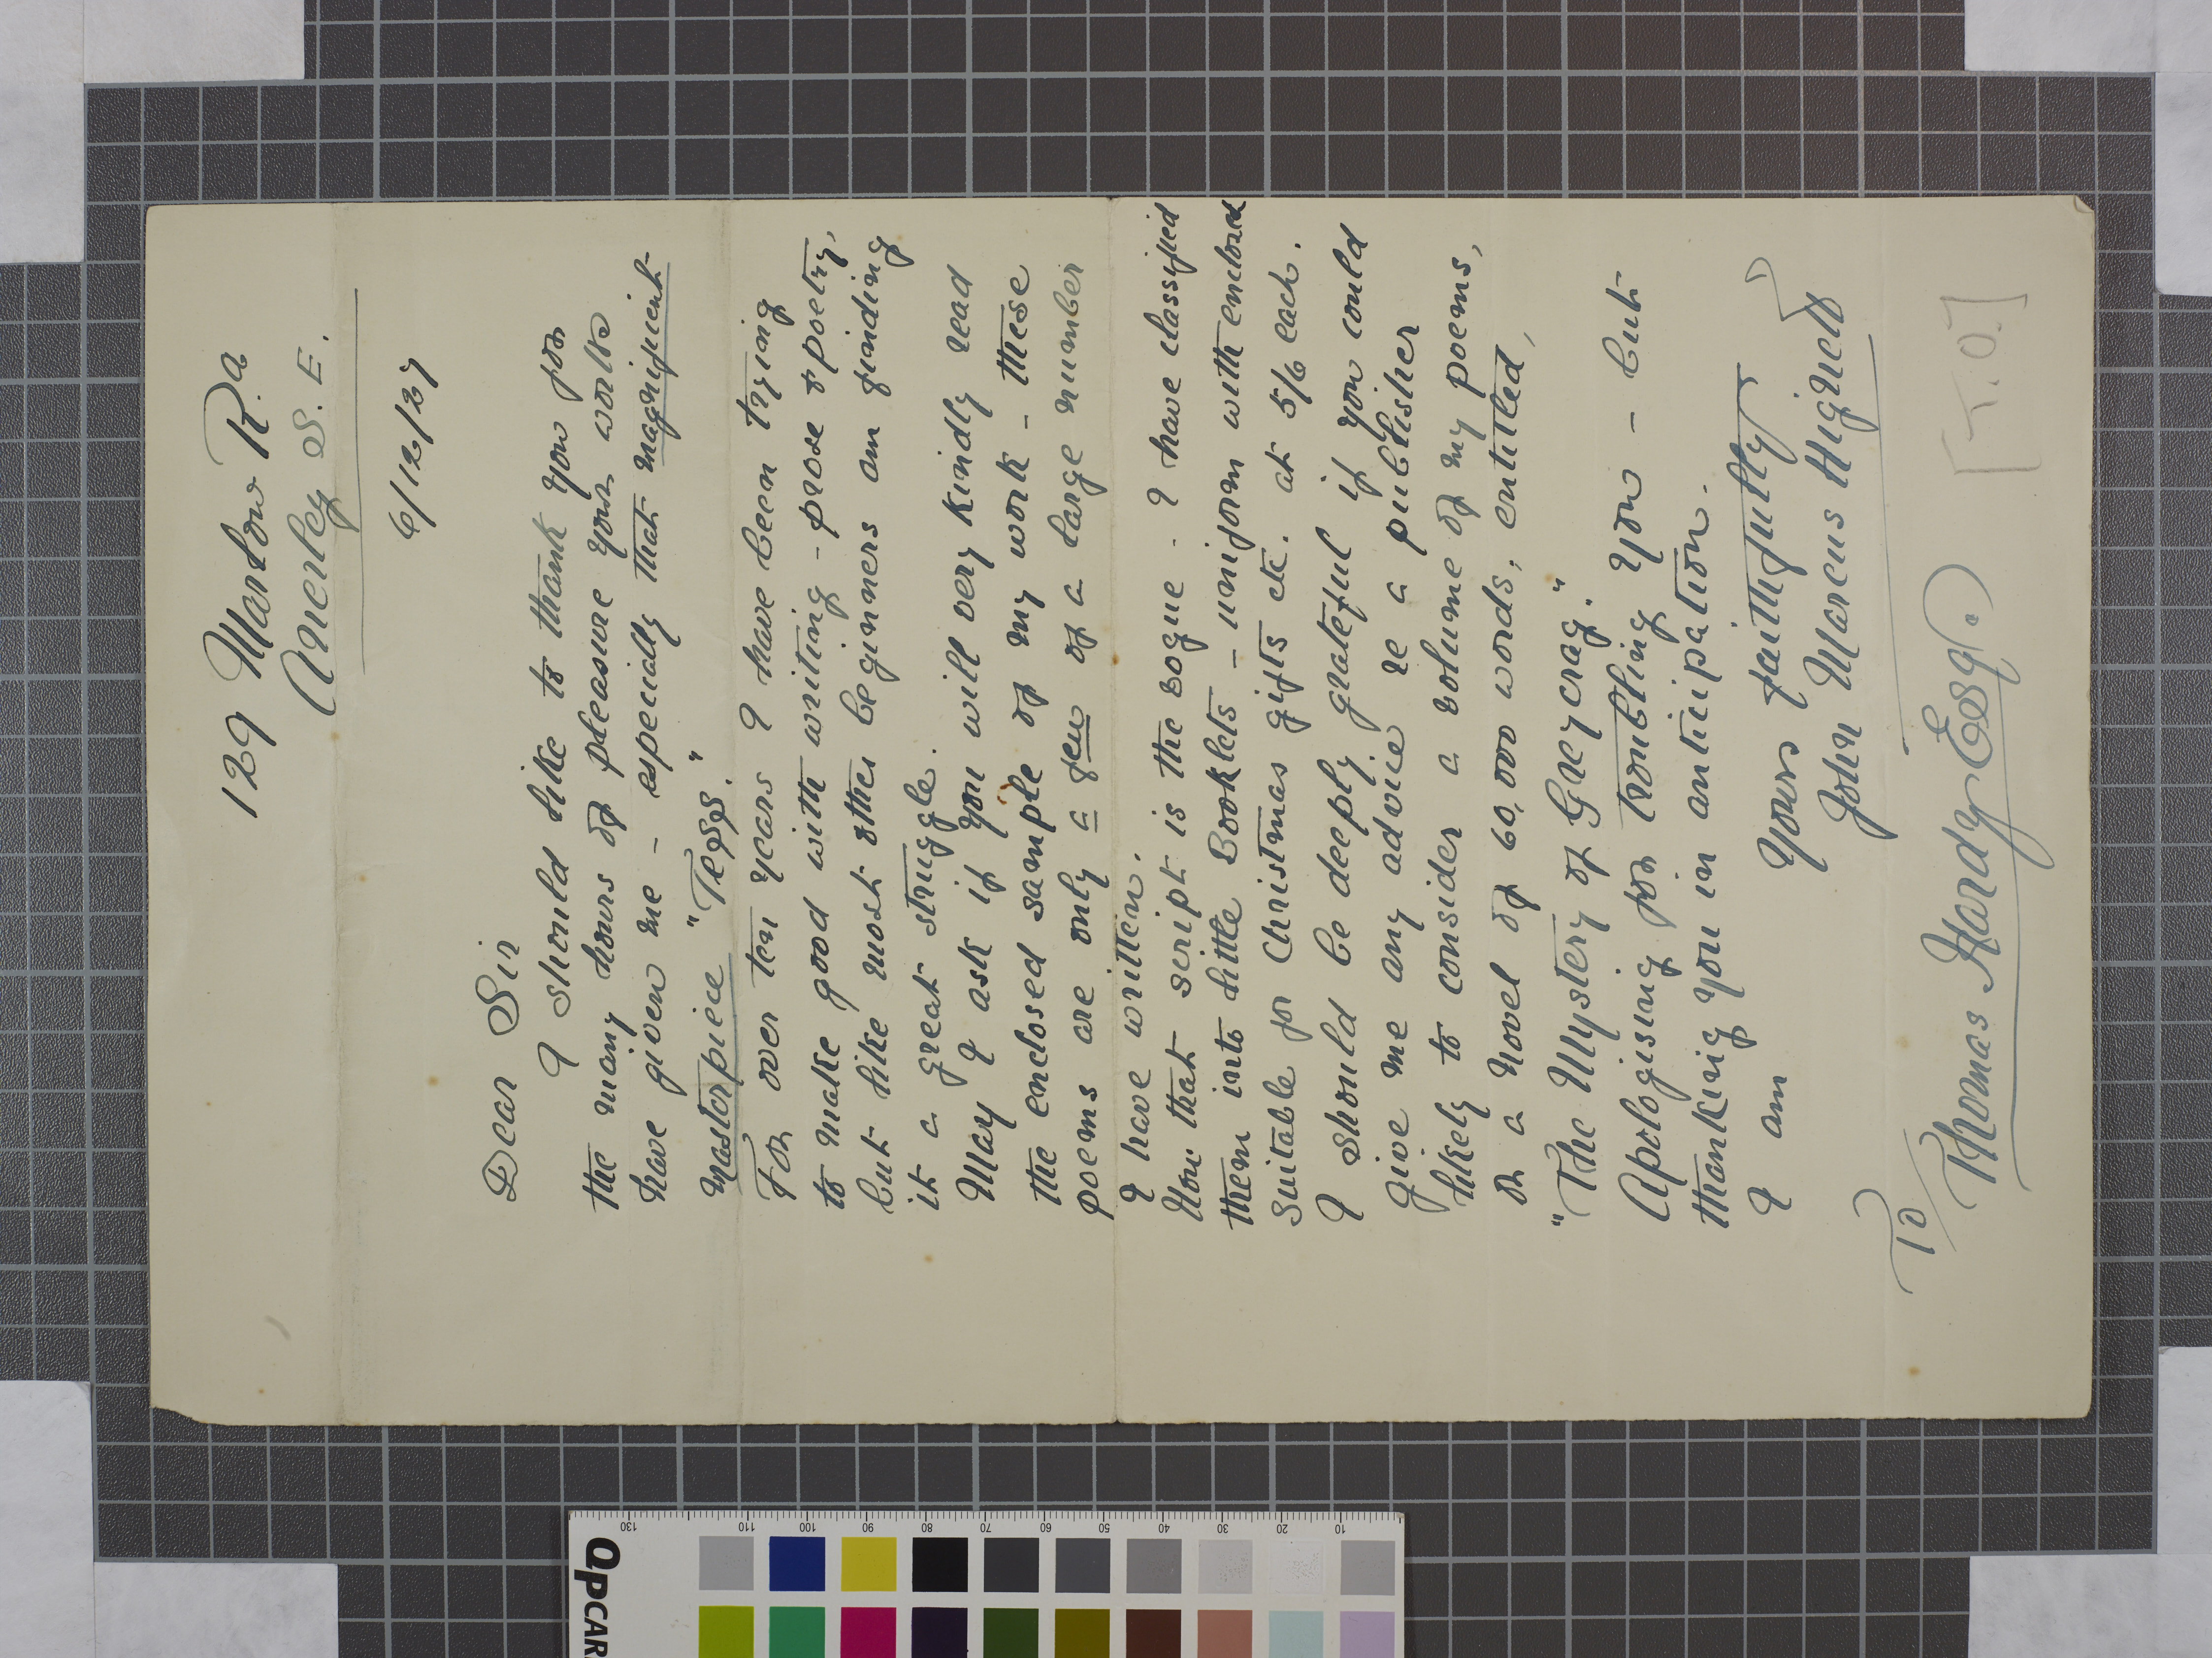 129 Marlow Rd
Anerley S.E.
6/12/27
Dear Sir
I should like to thank you for
the many hours of pleasure your works
have given me - especially that magnificent
masterpiece "Tess."
For over ten years I have been trying
to make good with writing - prose & poetry,
but like most other beginners am finding
it a great struggle.
May I ask if you will very kindly read
the enclosed sample of my work - these
poems are only a few of a large number
I have written.
Now that script is the vogue - I have classified
them into little Booklets - uniform with enclosed
suitable for Christmas gifts etc. at 5/6 each.
I should be deeply grateful if you could
give me any advice re a publisher
likely to consider a volume of my poems,
or a novel of 60,000 words, entitled,
"The Mystery of Greycrag."
Apologising for troubling you - but
thanking you in anticipation.
I am Yours faithfully
John Marcus Hignett
To/
Thomas Hardy Esq.
[T.O.]
QPCAR
130
110
100
90
80
70
60
50
40
30
20
10